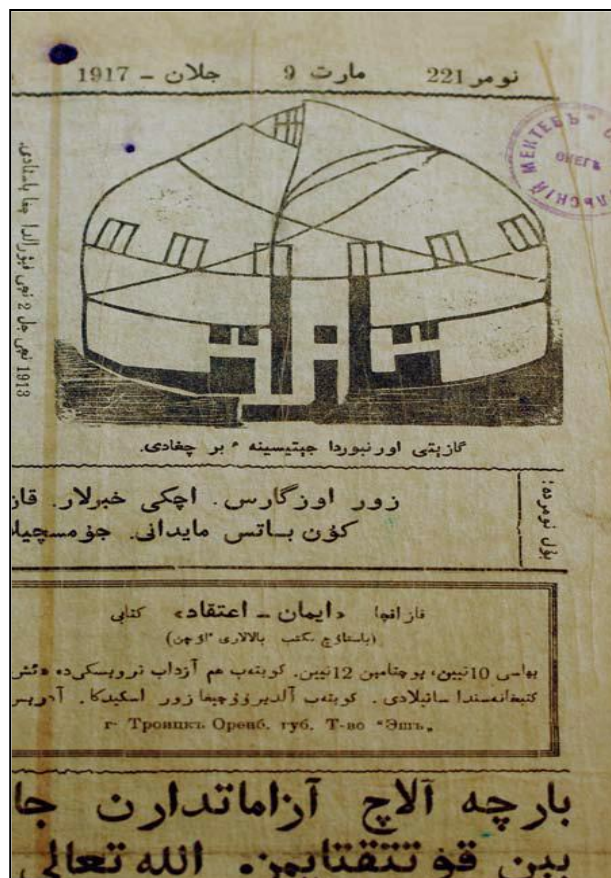 نومر 221 مارت 9 جلان – 1917
1913 نچى جل 2 نچى فيۋرالدا چغا باستادى.
گازيتى اورنبوردا جيتيسينه ٴ بر چغادى.
بۇل نومرده:
زور اوزگارس. اچكى خبرلار. قاز
كۇن باتس مايدانى. جۇمسچيلا
قازاقچا «ايمان – اعتقاد» كتابى
(باستاۋچ مكتب بالالارى ٴاۇچن)
بهاسى 10 تيين، پوچتامين 12 تيين. كوبتهب هم آزداب ترويسكى‌ده
كتبخانه‌سندا ساتيلادى. كوبتهب آلديرۇۋچيغا زور اسكيدكا. آدريس
г. Троицкъ Оренб. губ. Т-во "Эшъ„
بارچه آلاچ آزاماتدارن جا
بين قۇتتقتايمز. الله تعالى
МЕКТЕБЪ
ЛЬСКІЙ